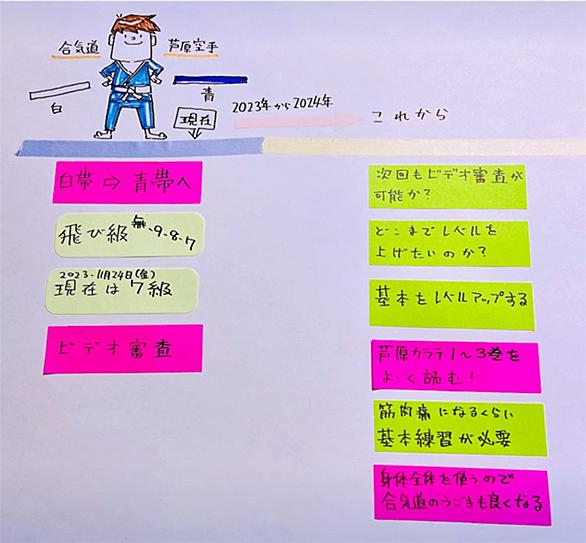 合気道
芦原空手
白
青
現在
2023年から2024年
これから
白帯⇨青帯へ
飛び級無-9-8-7
2023-11月24日(金)
現在は7級
ビデオ審査
次回もビデオ審査が
可能か?
どこまでレベルを
上げたいのか?
基本をレベルアップする
芦原カラテ1~3巻を
よーく読む!
筋肉痛になるくらい
基本練習が必要
身体全体を使うので
合気道のうごきも良くなる